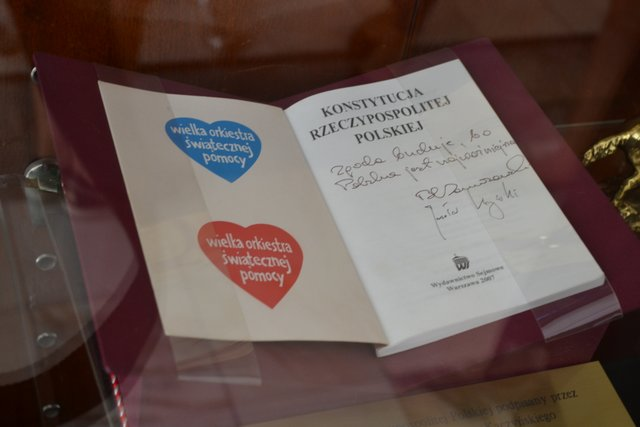 wielka orkiestra
świątecznej
pomocy
wielka orkiestra
świątecznej
pomocy
KONSTYTUCJA
RZECZYPOSPOLITEJ
POLSKIEJ
Zgoda buduje, bo
Polska jest najważniejsza
Wydawnictwo Sejmowe
Warszawa 2007
Polskiej podpisany przez